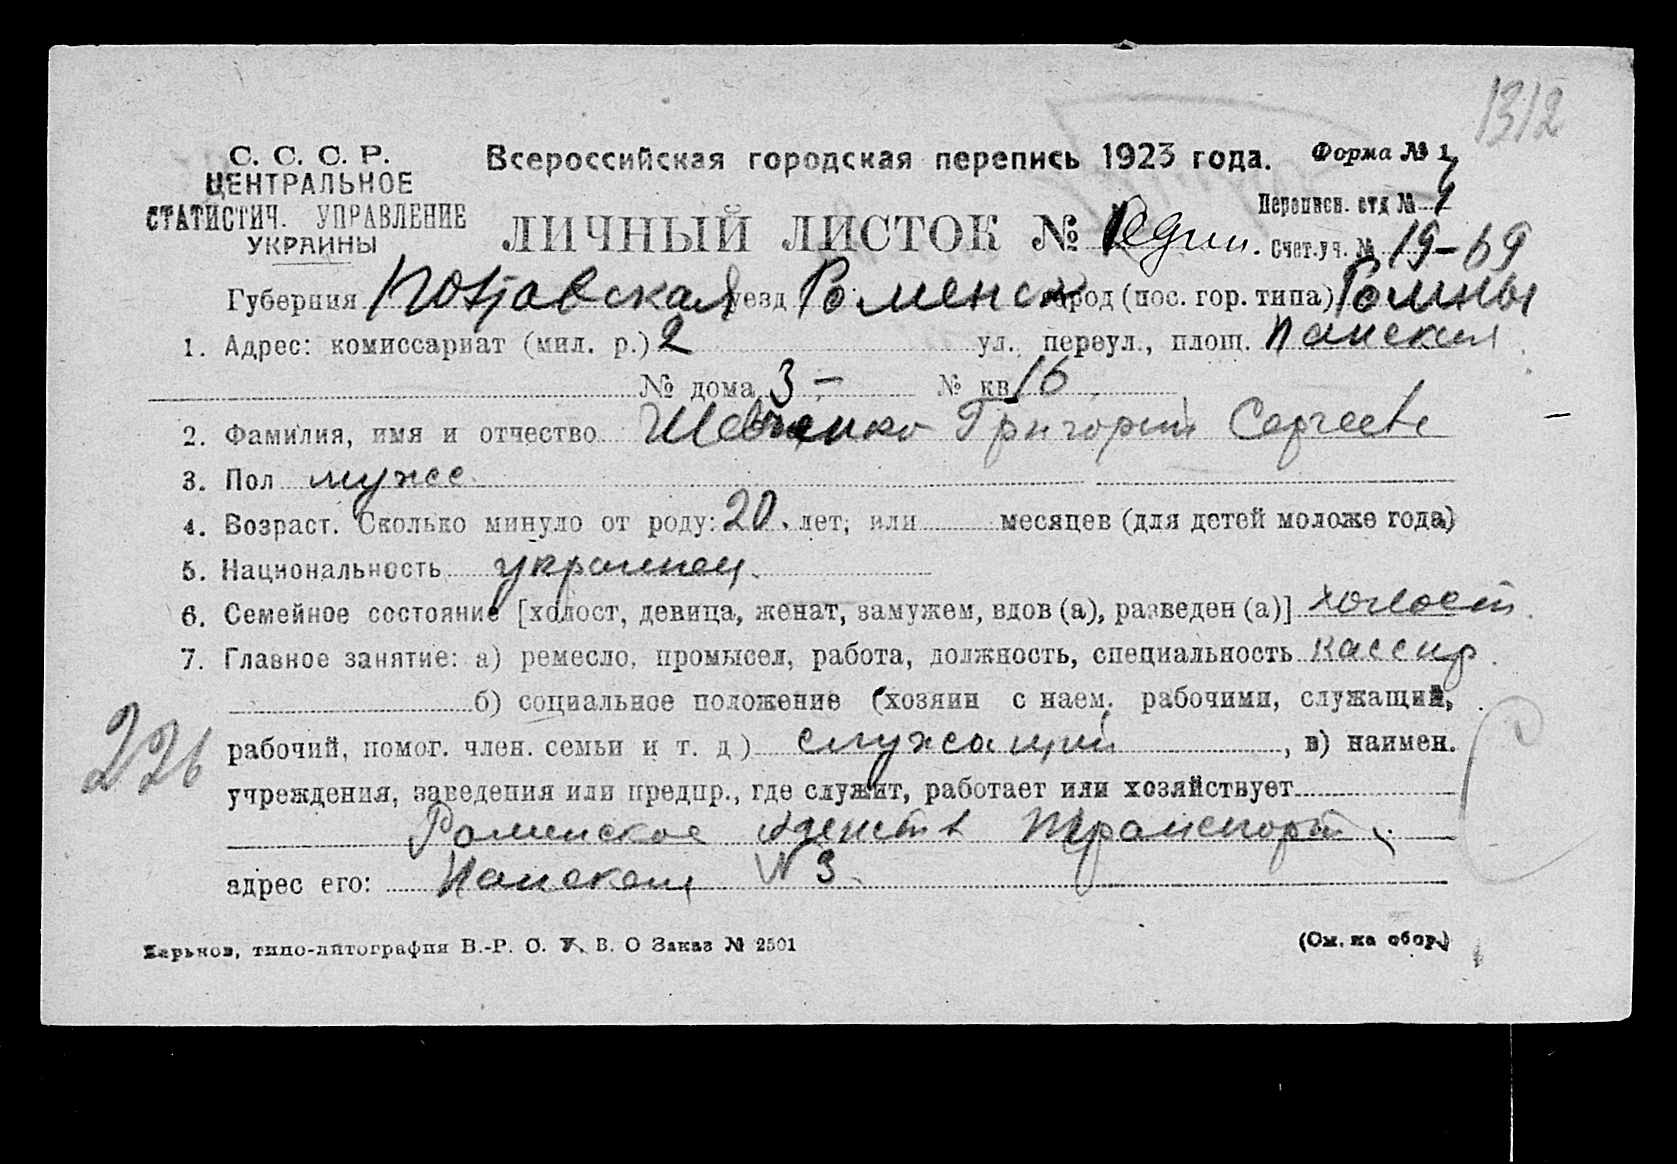 1312
С. С. С. Р.
ЦЕНТРАЛЬНОЕ
СТАТИСТИЧ. УПРАВЛЕНИЕ
УКРАИНЫ
Всероссийская городская перепись 1923 года.
Форма № 1
Переписн. отд № 4
ЛИЧНЫЙ ЛИСТОК № Един. Счет.уч. № 19-69
Губерния Полтавская уезд Роменск город (пос. гор. типа) Ромны
1. Адрес: комиссариат (мил. р.) 2 ул., переул., площ. Панская
№ дома 3 – № кв 16
2. Фамилия, имя и отчество Шевченко Григорий Сергеев
3. Пол мужс
4. Возраст. Сколько минуло от роду: 20. лет; или месяцев (для детей моложе года)
5. Национальность украинец.
6. Семейное состояние [холост, девица, женат, замужем, вдов (а), разведен (а)] холост.
7. Главное занятие: а) ремесло, промысел, работа, должность, специальность кассир.
б) социальное положение (хозяин с наем. рабочими, служащий,
226
рабочий, помог. член. семьи и т. д.) служащий, в) наимен.
учреждения, заведения или предпр., где служит, работает или хозяйствует
Роменское Агентств Транспорт
адрес его: Панская № 3.
Харьков, типо-литография В.-Р. С. У. В. О Заказ № 2501
(См. на обор.)